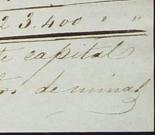 23.400 " "
te capital
os de minas